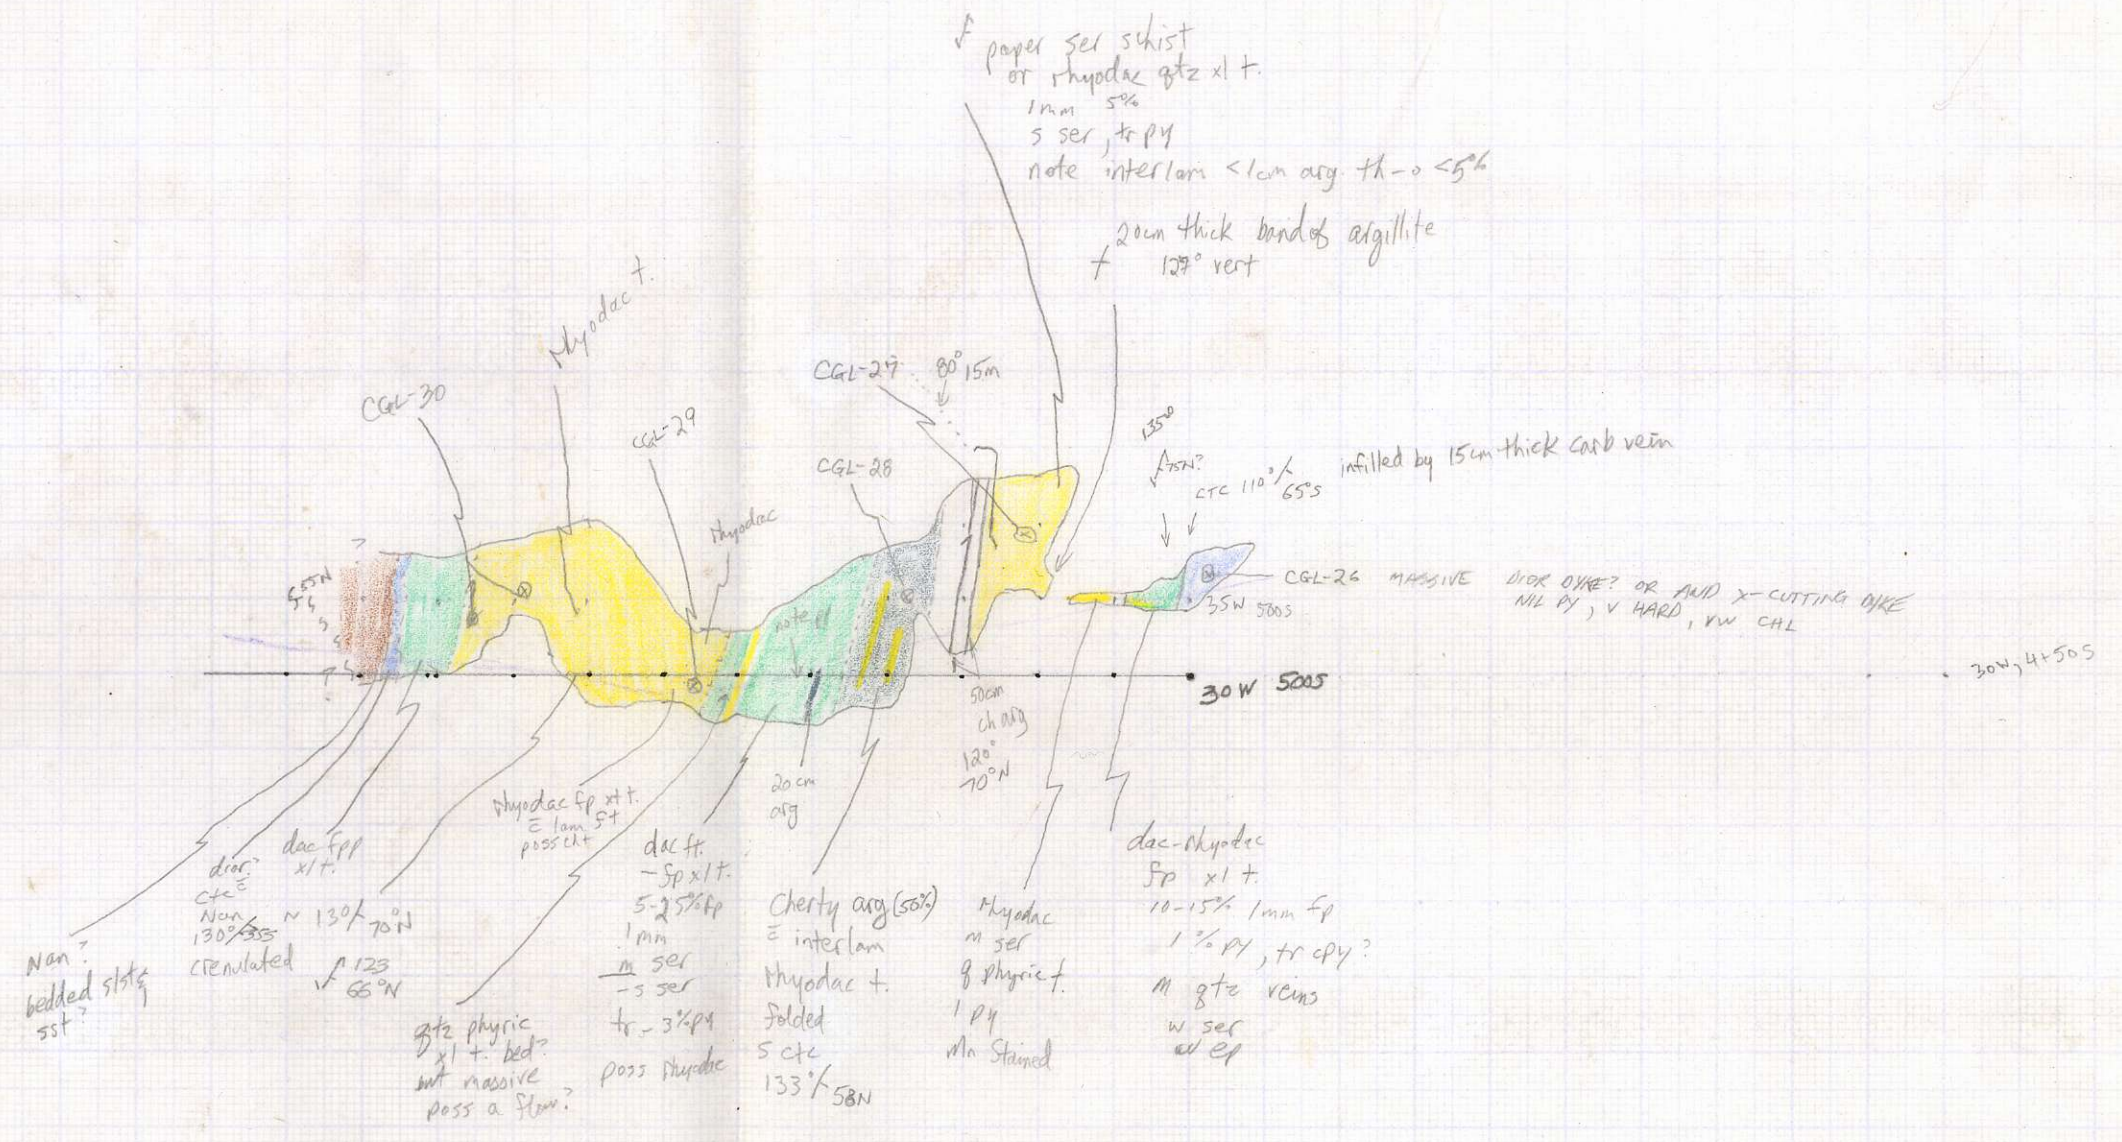 paper ser schist
or rhyodac qtz xl t.
1mm 5%
s ser, tr py
note interlam <1cm arg. th-o <5%
20cm thick band of argillite
127° vert
rhyodac t.
CGL-30
CGL-29
rhyodac
CGL-27
80° 15m
CGL-28
135°
75N?
CTC 110°/65°S
infilled by 15cm thick carb vein
55N
note pl
CGL-26 MASSIVE DIOR DYKE? OR AND X-CUTTING DYKE
NIL PY, V HARD, VW CHL
35W 500S
30W 500S
30W, 4+50S
50cm
ch arg
120°
70°N
20cm
arg
rhyodac fp xl t.
c̄ lam ft
poss cht
dac fpp
xl t.
dior?
ctc c̄
Nan
130°/35S
crenulated
~ 130/70°N
123
66°N
Nan?
bedded slst &
sst?
qtz phyric
xl t. bed?
but massive
poss a flow?
dac ft.
- fp xl t.
5-25% fp
1mm
m ser
- s ser
tr - 3% py
poss rhyodac
Cherty arg (50%)
c̄ interlam
rhyodac t.
folded
S ctc
133°/58N
rhyodac
m ser
q phyric t.
1 py
Mn Stained
dac-rhyodac
fp xl t.
10-15% 1mm fp
1% py, tr cpy?
m qtz veins
w ser
w ep